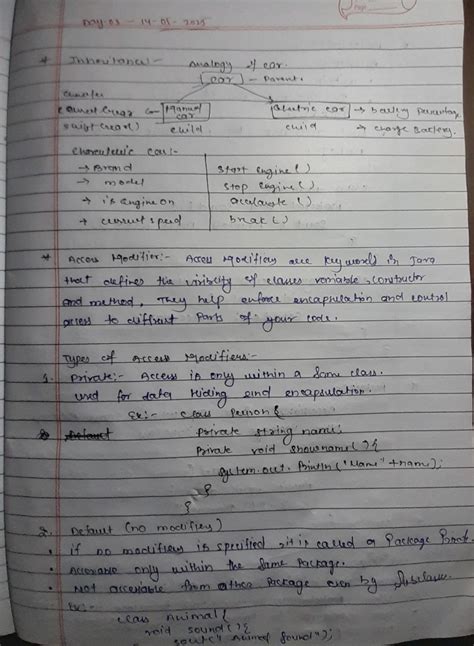 Day: 03 - 14-05-2025
* Inheritance :- Analogy of car.
car - Parent.
Manual car
Electric car → battery Percentage
child child → charge Battery.
Characteristic Car :-
→ Brand Start Engine()
→ model Stop Engine()
→ is Engine on accelarate()
→ current speed brak()
* Access Modifier:- Access Modifiers are keywords in Java
that defines the visiblity of classes variable, constructor
and method, They help enforce encapsulation and control
access to diffrent Parts of your code.
Types of Access Modifiers:-
1. Private:- Access is only within a Same class.
used for data hiding and encapsulation.
Ex:- class Person {
Private String name;
Private void showname(){
System.out.Println("Name"+name);
}
}
2. Default (no modifier)
• if no modifiers is specified, it is called a Package Private.
• Accessable only within the Same Package.
• Not accessable from other Package even by Subclass.
Ex:-
class Animal{
void sound(){
sout("Animal Sound");